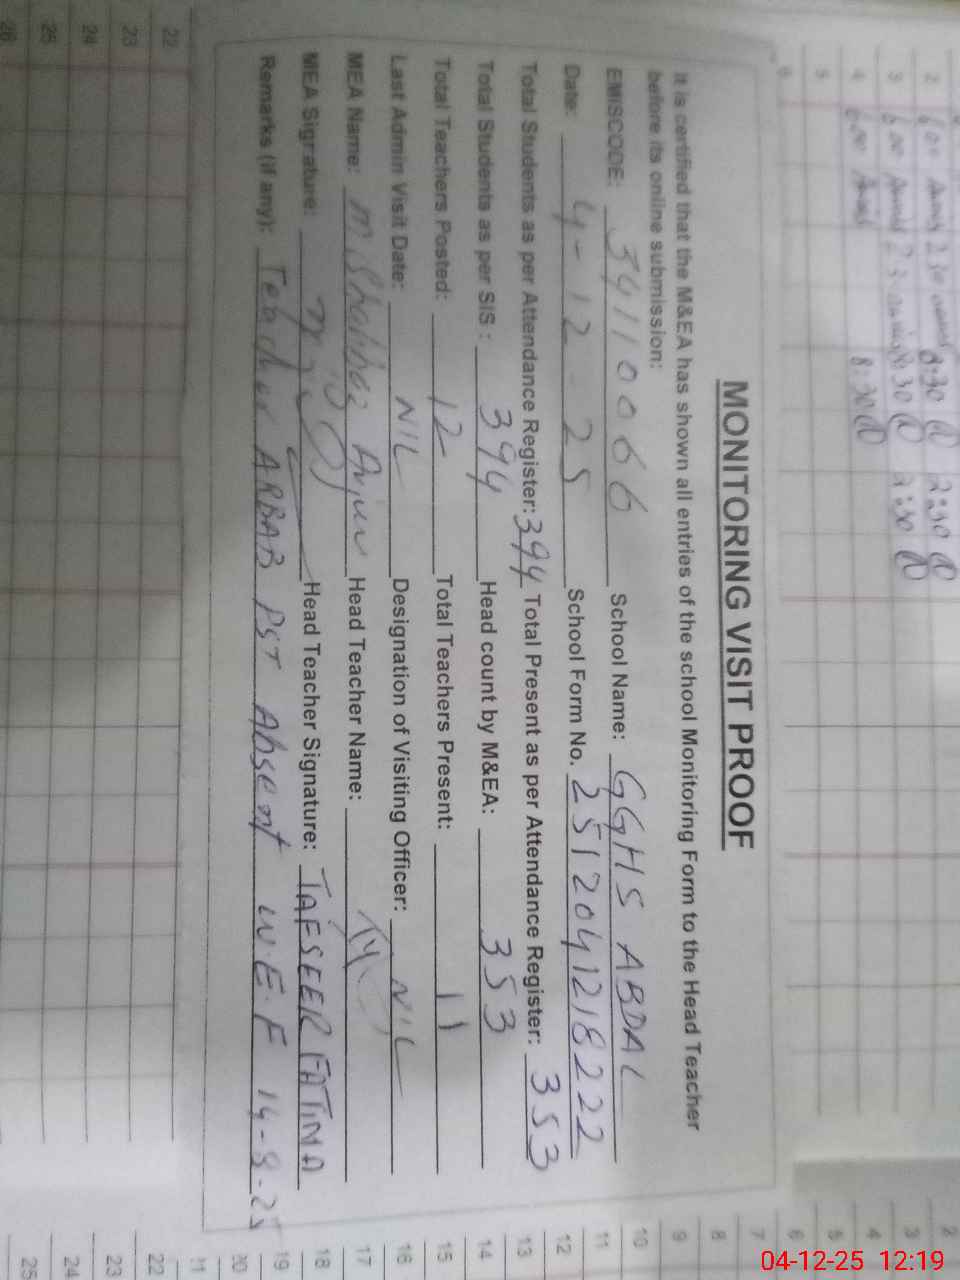 MONITORING VISIT PROOF
It is certified that the M&EA has shown all entries of the school Monitoring Form to the Head Teacher
before its online submission:
EMISCODE: 34110066 School Name: GGHS ABDAL
Date: 4-12-25 School Form No. 2512041218222
Total Students as per Attendance Register: 394 Total Present as per Attendance Register: 353
Total Students as per SIS: 394 Head count by M&EA: 353
Total Teachers Posted: 12 Total Teachers Present: 11
Last Admin Visit Date: NIL Designation of Visiting Officer: NIL
MEA Name: Head Teacher Name:
MEA Signature: Head Teacher Signature: TAFSEER FATIMA
Remarks (if any): Teacher ARBAB PST Absent W.E.F 14-8-25
2 8:30 2:30
3 8:30 2:30
4 8:30
5
6
22
23
24
25
26
2
3
4
5
6
7
8
9
10
11
12
13
14
15
16
17
18
19
20
21
22
23
24
25
04-12-25 12:19